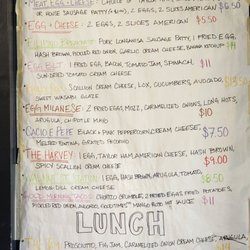 MEAT, EGG + CHEESE:
OR HOUSE SAUSAGE PATTY (+$1), 2 EGGS, 2 SLICES AMERICAN
EGG + CHEESE: 2 EGGS, 2 SLICES AMERICAN $5.50
PORK LONGANISA SAUSAGE PATTY, 1 FRIED EGG,
HASH BROWN, PICKLED RED ONION, GARLIC CREAM CHEESE, BANANA KETCHUP
EGG BLT: 1 FRIED EGG, BACON, TOMATO JAM, SPINACH, $11
SUN-DRIED TOMATO CREAM CHEESE
SCALLION CREAM CHEESE, LOX, CUCUMBERS, AVOCADO,
SWEET WASABI GLAZE
EGG MILANESE: 2 FRIED EGGS, MOZZ, CARAMELIZED ONIONS, LONG HOTS, $10
ARUGULA, SPICY MAYO
CACIO E PEPE: BLACK + PINK PEPPERCORN CREAM CHEESE, $7.50
MELTED FONTINA, GRATED PECORINO
THE HARVEY: 1 EGG, TAYLOR HAM, AMERICAN CHEESE, HASH BROWN, $9.00
SPICY SCALLION CREAM CHEESE
1 EGG, HASH BROWN, ARUGULA, TOMATO, $8.50
LEMON DILL CREAM CHEESE
CHORIZO CRUMBLE, 2 FRIED EGGS, FRIED POTATOES,
PICKLED RED ONION, AVOCADO, MANGO $11
LUNCH
PROSCIUTTO, FIG JAM, CARAMELIZED ONION CREAM CHEESE, ARUGULA